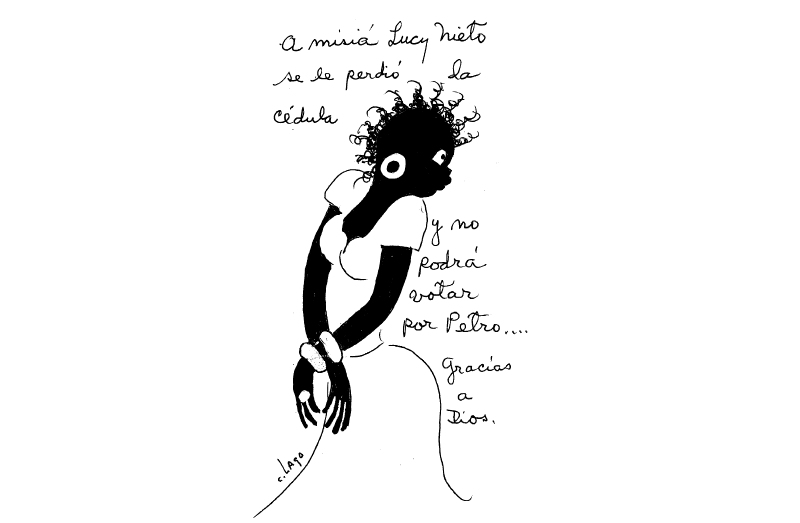 A misiá Lucy Nieto
se le perdió la
cédula
y no
podrá
votar
por Petro....
Gracias
a
Dios.
c. LAGO